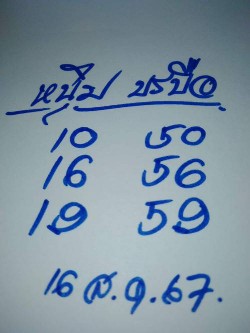 หนุ่ม บรบือ
10 50
16 56
19 59
16 ส.ค.67.